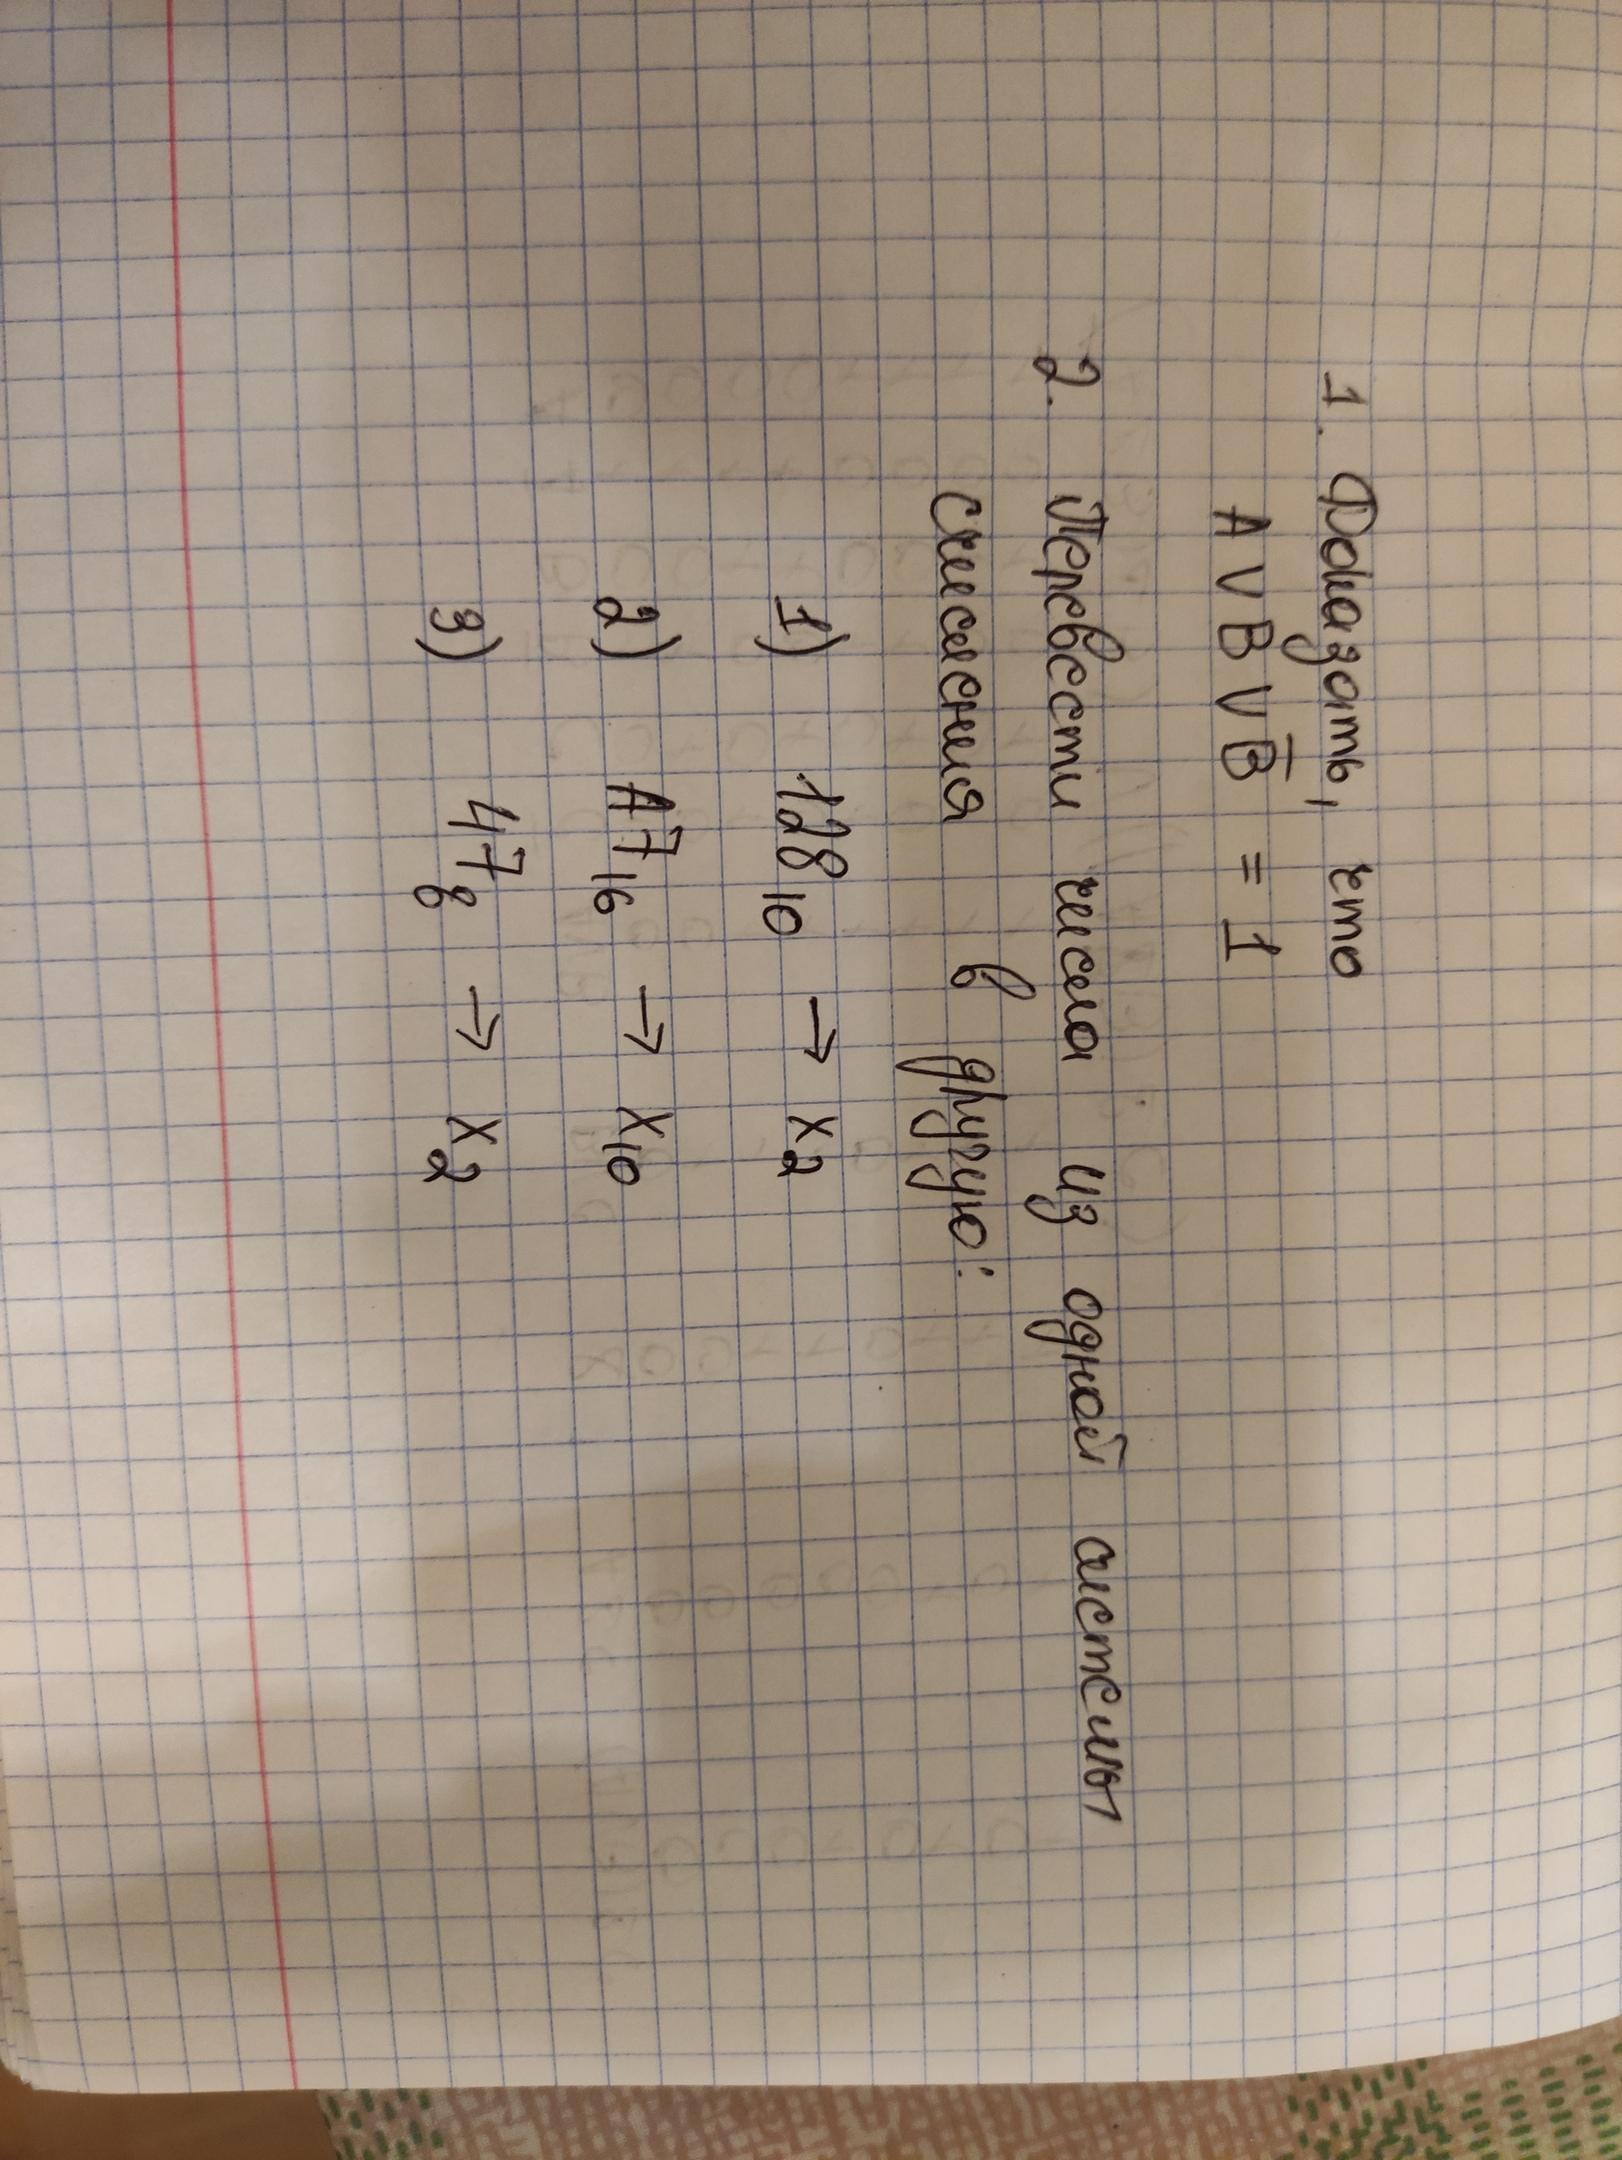 1. Доказать, что
A V B V B̅ = 1
2. Перевести числа из одной системы
счисления в другую:
1) 128₁₀ → X₂
2) A7₁₆ → X₁₀
3) 47₈ → X₂